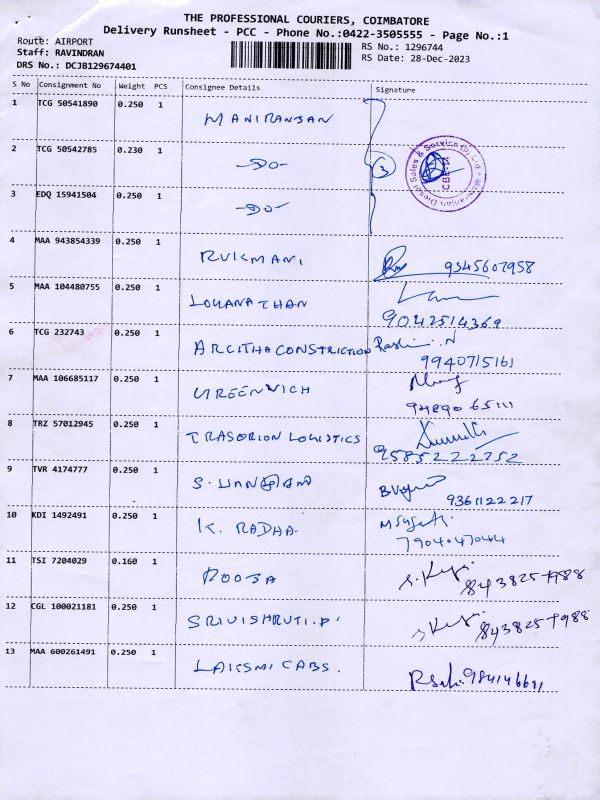 THE PROFESSIONAL COURIERS, COIMBATORE
Delivery Runsheet - PCC - Phone No.:0422-3505555 - Page No.:1
Route: AIRPORT
Staff: RAVINDRAN
DRS No.: DCJB129674401
RS No.: 1296744
RS Date: 28-Dec-2023
S No Consignment No Weight PCS Consignee Details Signature
1 TCG 50541890 0.250 1 MANIRANJAN
2 TCG 50542785 0.230 1 -DO- 3
3 EDQ 15941504 0.250 1 -DO-
4 MAA 943854339 0.250 1 RUKMANI 9345607958
5 MAA 104480755 0.250 1 LOGANATHAN
9042514369
6 TCG 232743 0.250 1 ARCITHA CONSTRICTION
9940715161
7 MAA 106685117 0.250 1 GREENWICH
8 TRZ 57012945 0.250 1 TRASORION LOGISTICS
9585222752
9 TVR 4174777 0.250 1 S.
9361122217
10 KDI 1492491 0.250 1 K. RADHA
7904047044
11 TSI 7204029 0.160 1 POOJA 8438257988
12 CGL 100021181 0.250 1 SRIVISHRUTI.P. 8438257988
13 MAA 600261491 0.250 1 LAKSMI CABS.